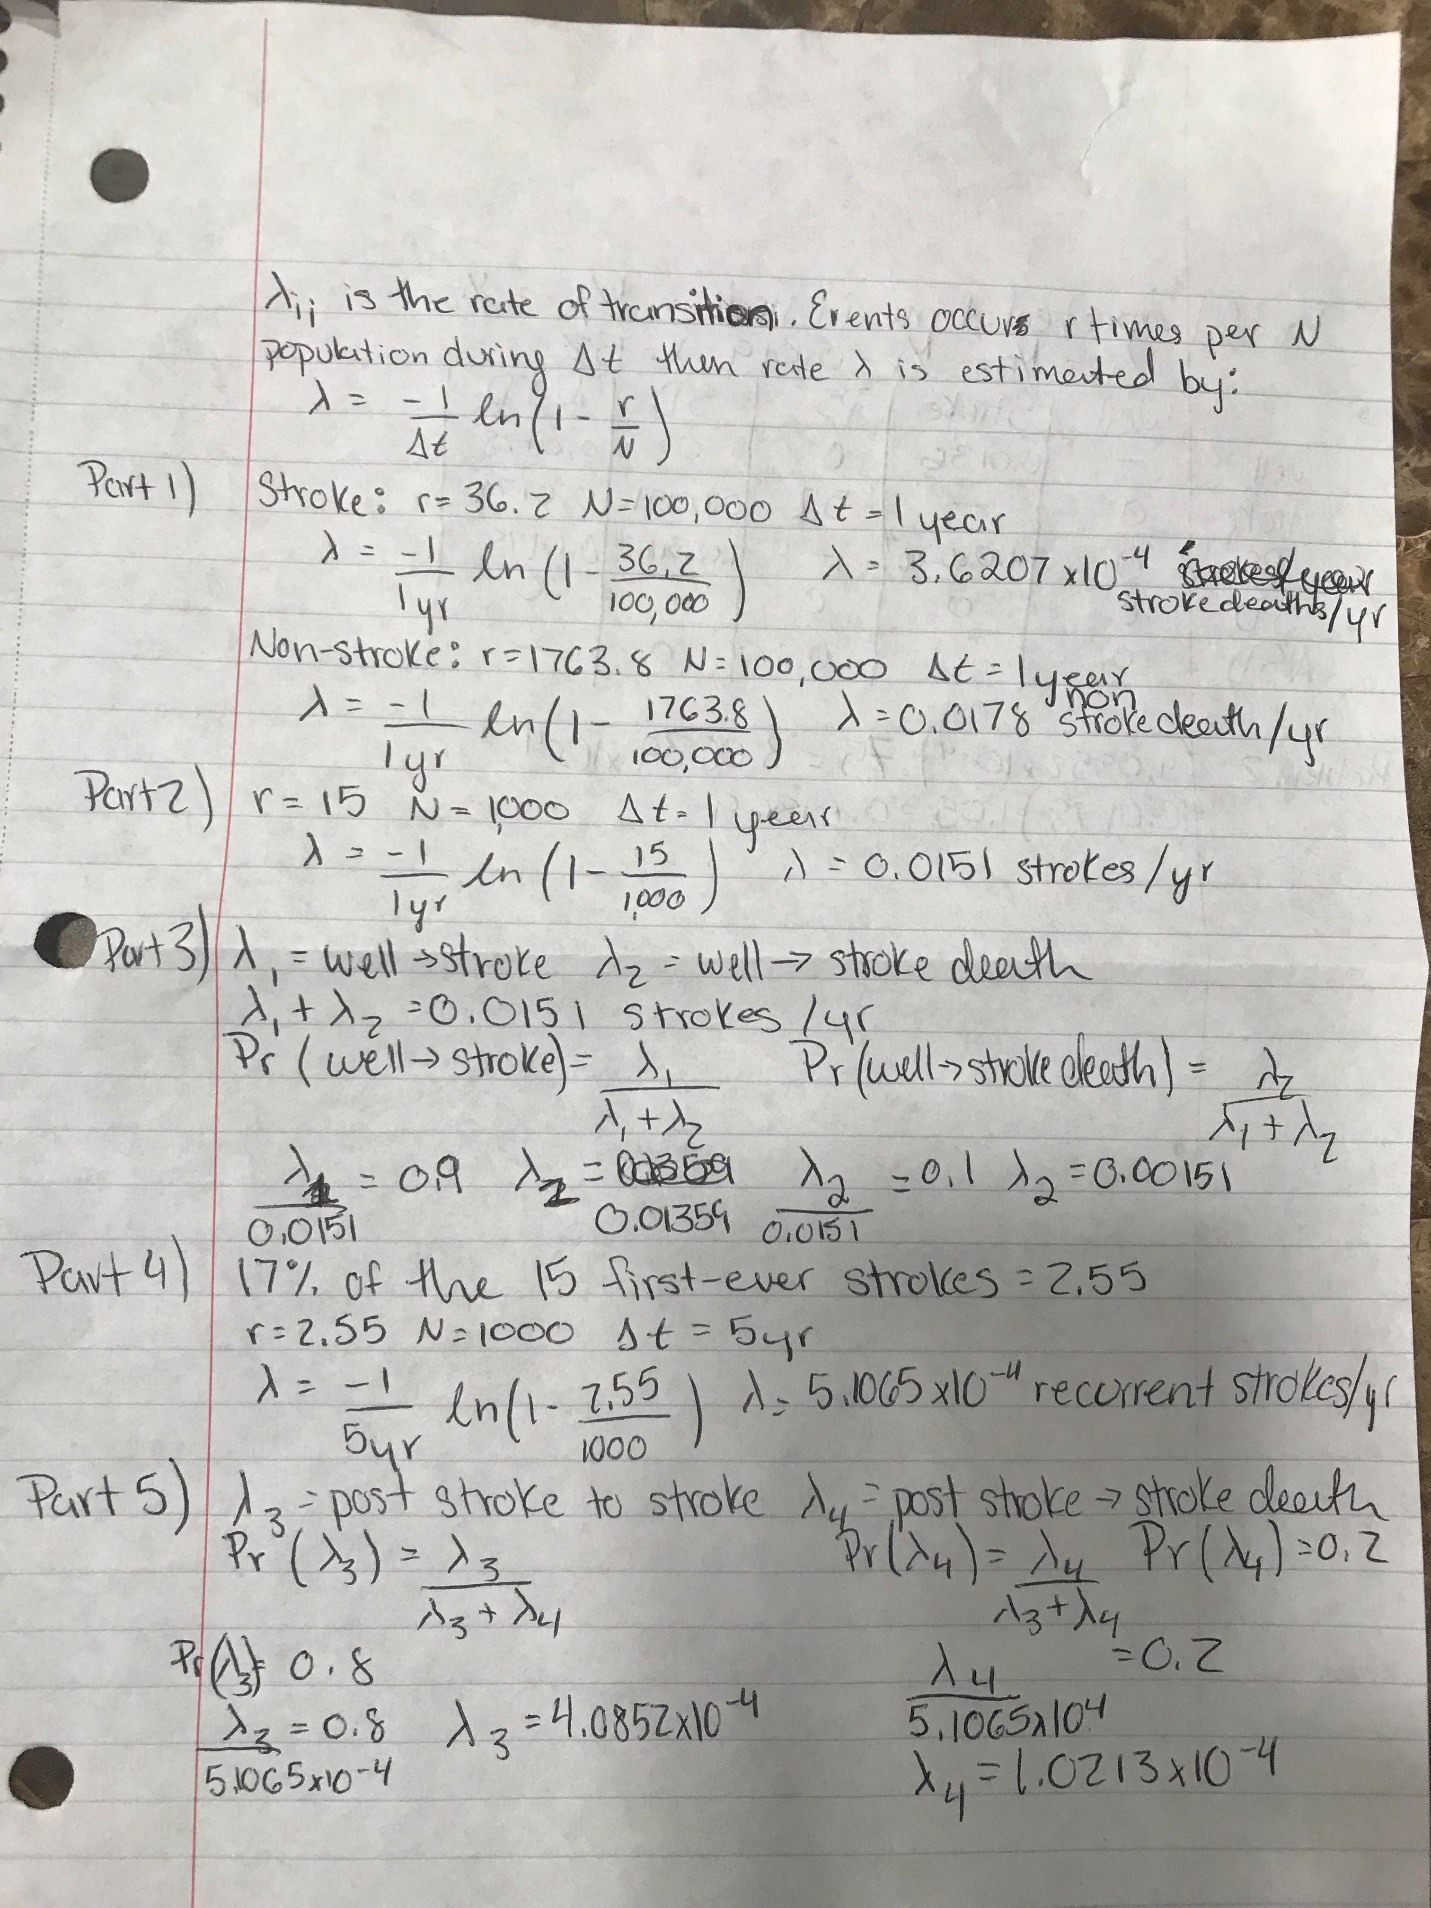 λij is the rate of transition. Events occurs r times per N
population during Δt then rate λ is estimated by:
λ = -1/Δt ln(1 - r/N)
Part 1) Stroke: r=36.2 N=100,000 Δt=1 year
λ = -1/1yr ln(1 - 36.2/100,000) λ = 3.6207x10⁻⁴
stroke deaths/yr
Non-stroke: r=1763.8 N=100,000 Δt=1 year
λ = -1/1yr ln(1 - 1763.8/100,000) λ=0.0178 non stroke death/yr
Part 2) r=15 N=1,000 Δt=1 year
λ = -1/1yr ln(1 - 15/1,000) λ = 0.0151 strokes/yr
Part 3) λ₁ = well→stroke λ₂ = well→ stroke death
λ₁+λ₂ =0.0151 strokes/yr
Pr(well→stroke)= λ₁/(λ₁+λ₂) Pr(well→stroke death) = λ₂/(λ₁+λ₂)
λ₁/0.0151 = 0.9 λ₂ = 0.01359 λ₂/0.0151 =0.1 λ₂=0.00151
Part 4) 17% of the 15 first-ever strokes = 2.55
r=2.55 N=1000 Δt=5yr
λ = -1/5yr ln(1- 2.55/1000) λ= 5.1065x10⁻⁴ recurrent strokes/yr
Part 5) λ₃ = post stroke to stroke λ₄ = post stroke → stroke death
Pr(λ₃) = λ₃/(λ₃+λ₄) Pr(λ₄)= λ₄/(λ₃+λ₄) Pr(λ₄)=0.2
Pr(λ₃)= 0.8
λ₄/5.1065x10⁴ =0.2
λ₃/5.1065x10⁻⁴ = 0.8 λ₃ =4.0852x10⁻⁴
λ₄=1.0213x10⁻⁴